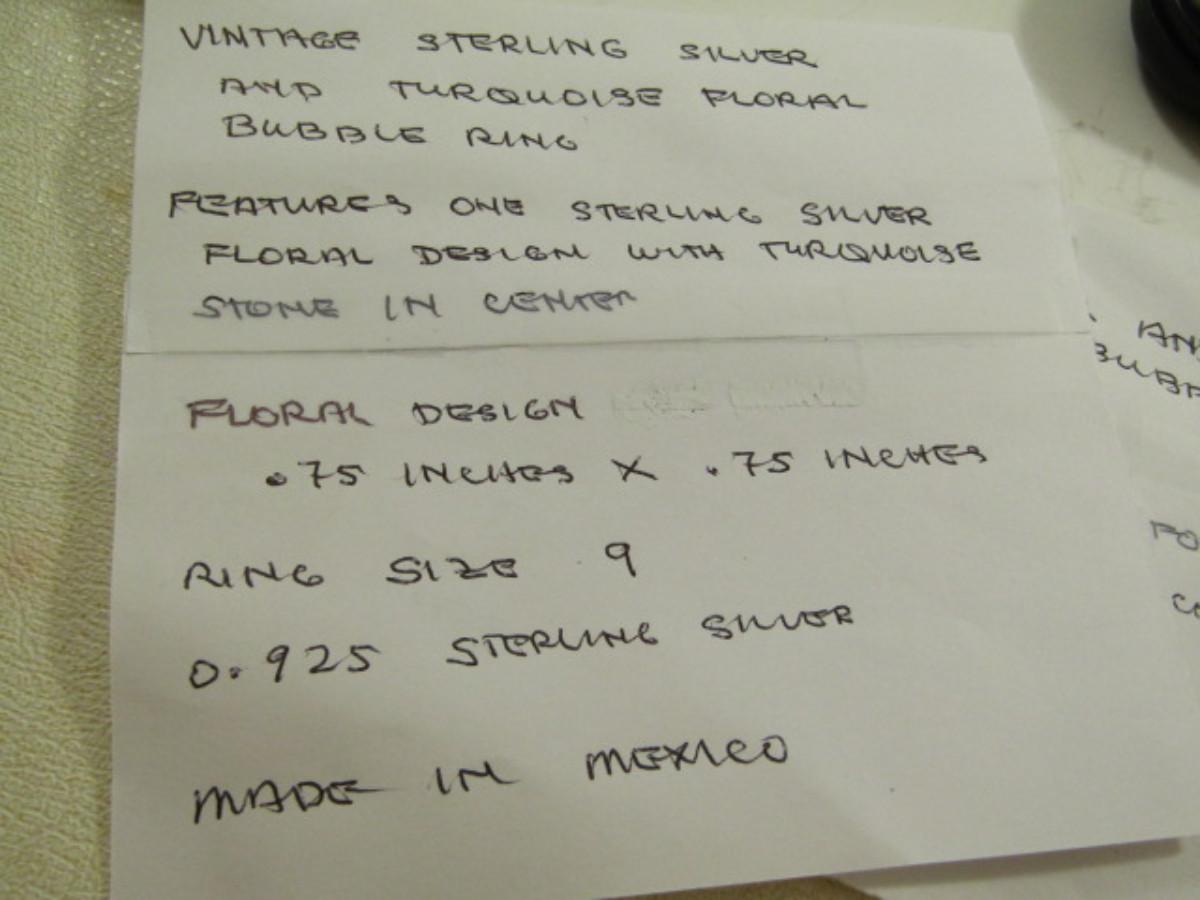 VINTAGE STERLING SILVER
AND TURQUOISE FLORAL
BUBBLE RING
FEATURES ONE STERLING SILVER
FLORAL DESIGN WITH TURQUOISE
STONE IN CENTER
FLORAL DESIGN
.75 INCHES X .75 INCHES
RING SIZE 9
0.925 STERLING SILVER
MADE IN MEXICO